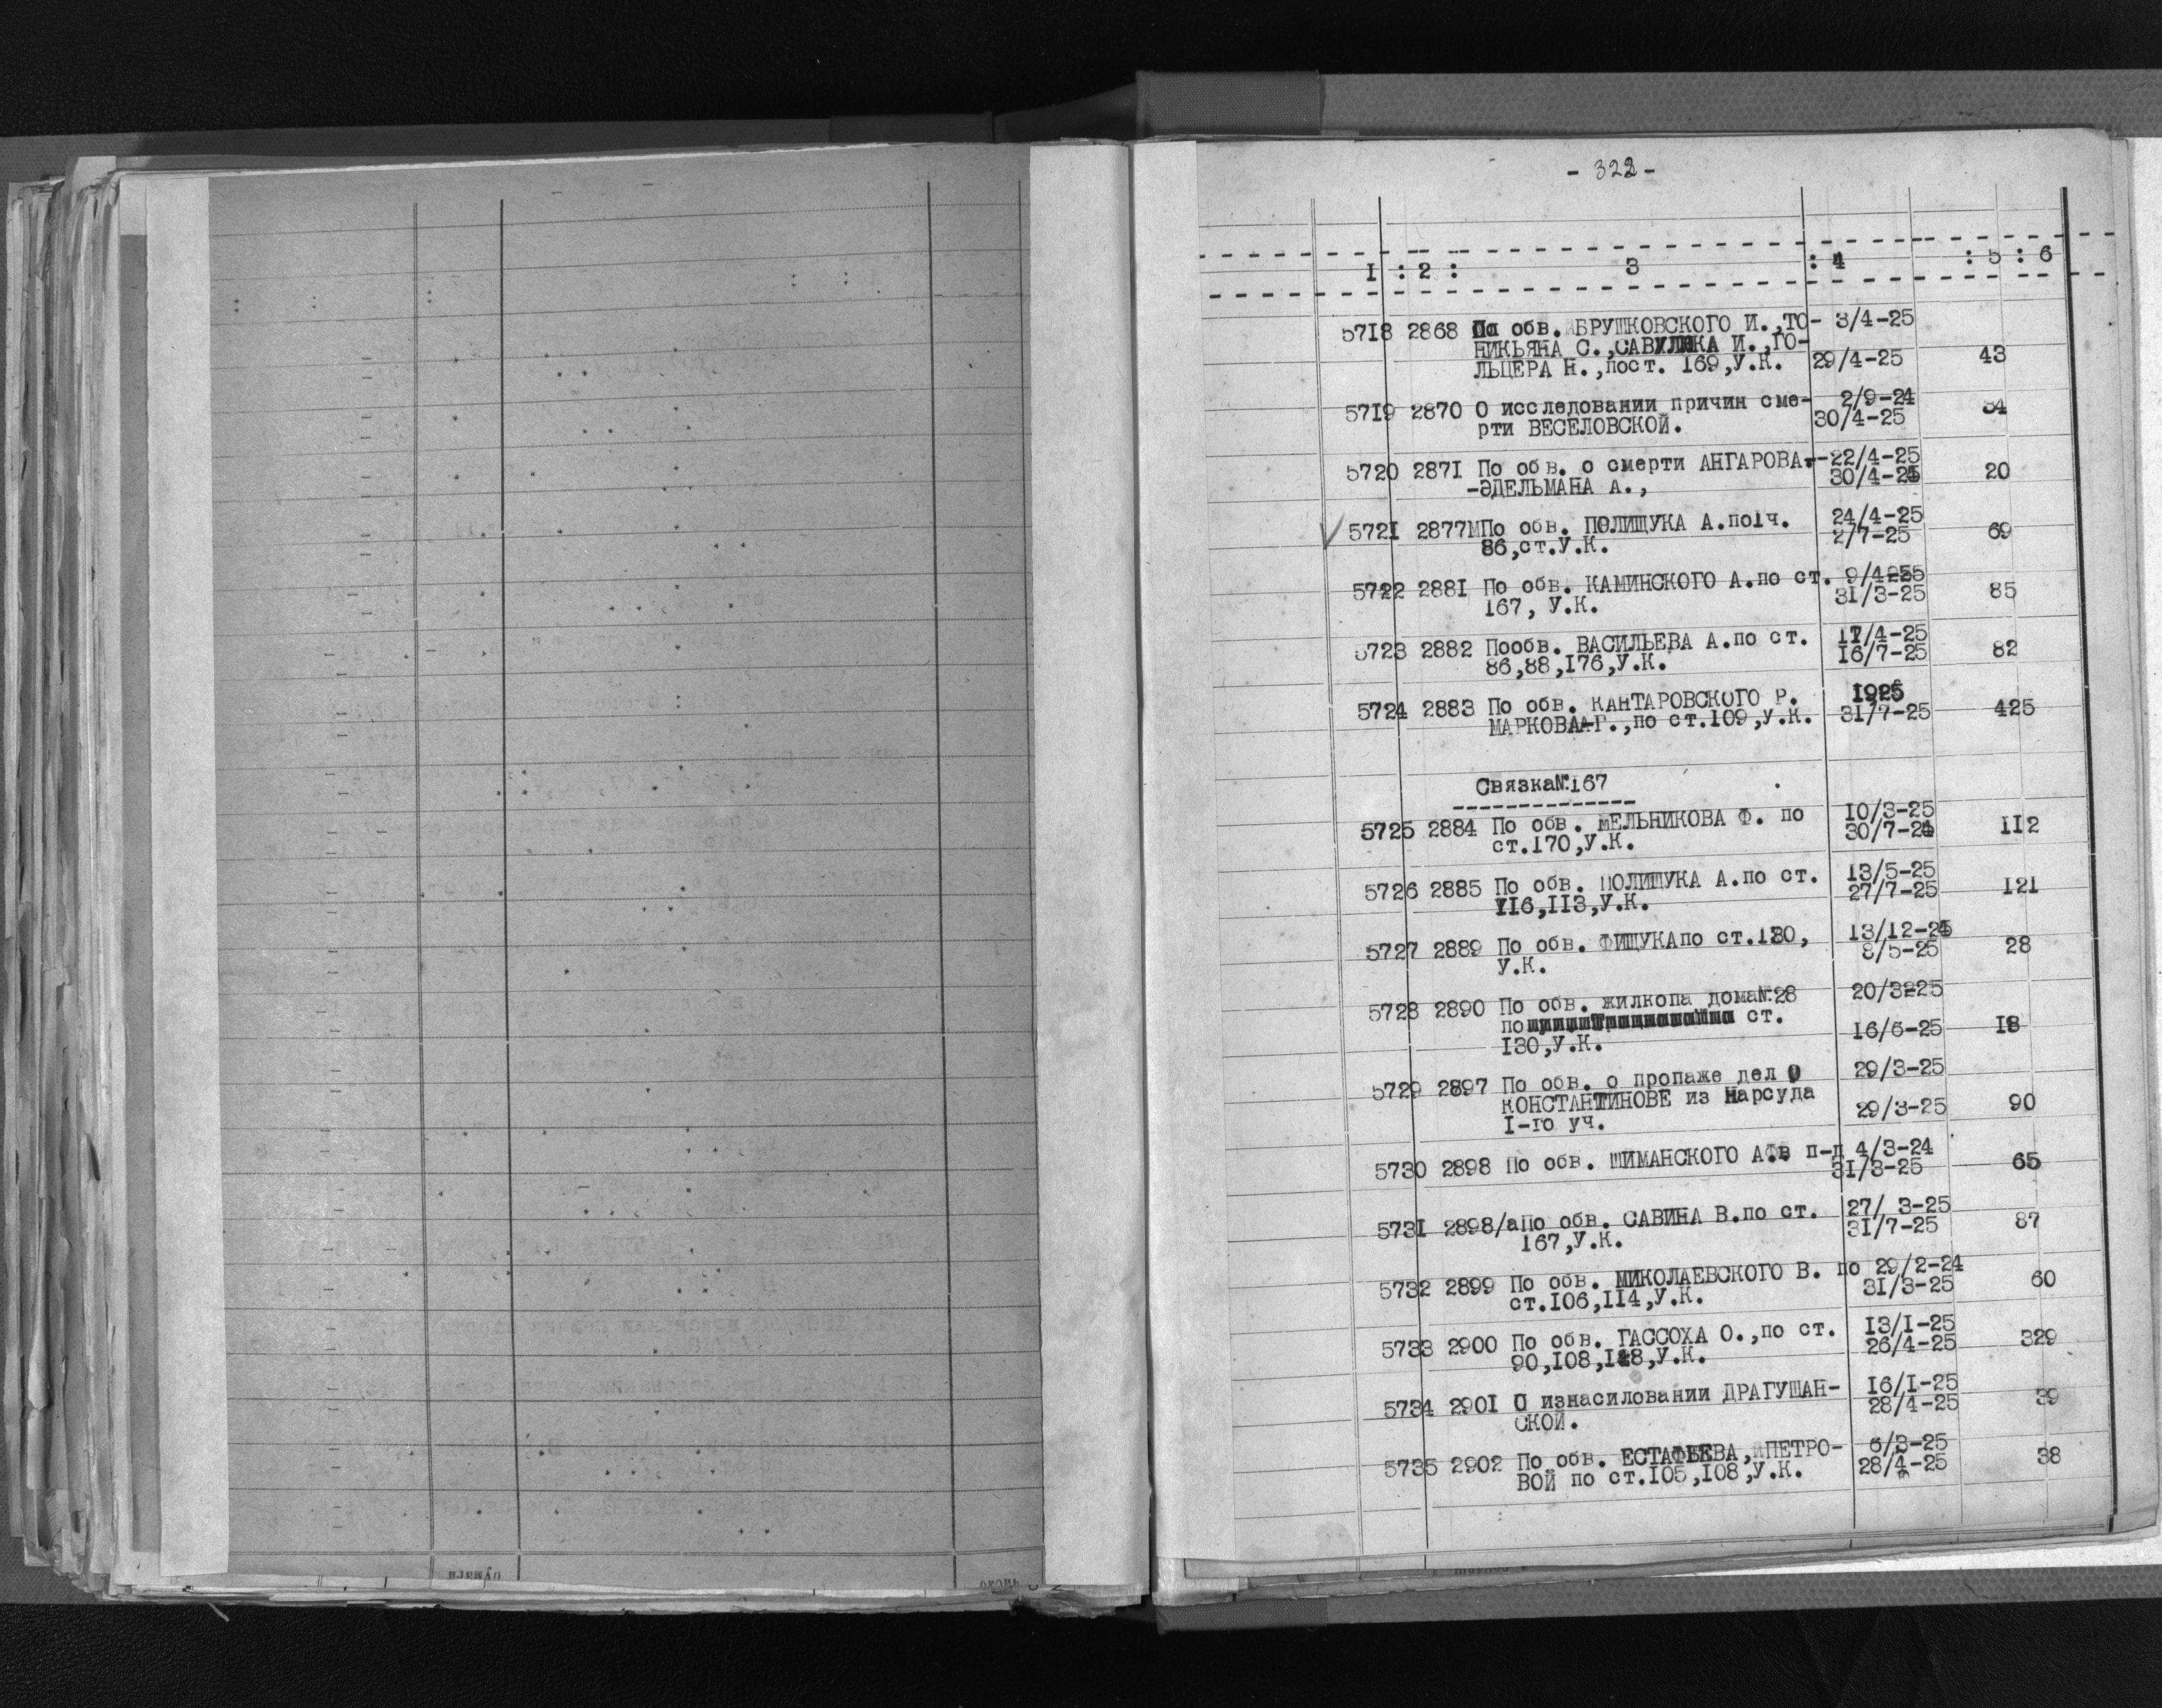 - 322 -
1 : 2 : 3 : 4 : 5 : 6
5718 2868 По обв. БРУШКОВСКОГО И.,ТО- 3/4-25
НИКЬЯНА С.,САВУЛЯКА И.,ГО-
ЛЬЦЕРА Н.,пост. 169,У.К. 29/4-25 43
5719 2870 О исследовании причин сме- 2/9-24 34
рти ВЕСЕЛОВСКОЙ. 30/4-25
5720 2871 По обв. о смерти АНГАРОВА.-22/4-25 20
-ЭДЕЛЬМАНА А., 30/4-25
5721 2877 По обв. ПОЛИЩУКА А.по1ч. 24/4-25 69
86,ст.У.К. 2/7-25
5722 2881 По обв. КАМИНСКОГО А.по ст. 9/4-25 85
167, У.К. 31/3-25
5723 2882 Пообв. ВАСИЛЬЕВА А.по ст. 17/4-25 82
86,88,176,У.К. 16/7-25
5724 2883 По обв. КАНТАРОВСКОГО Р. 1925 425
МАРКОВАА-Р.,по ст.109,У.К. 31/7-25
Связка№167
5725 2884 По обв. МЕЛЬНИКОВА Ф. по 10/3-25 112
ст.170,У.К. 30/7-24
5726 2885 По обв. ПОЛИЩУКА А.по ст. 13/5-25 121
116,113,У.К. 27/7-25
5727 2889 По обв. ФИЩУКАпо ст.130, 13/12-24 28
У.К. 8/5-25
5728 2890 По обв. жилкопа дома№28 20/3-25
по ст. 16/6-25 18
130,У.К.
5729 2897 По обв. о пропаже дел о 29/3-25
КОНСТАНТИНОВЕ из Нарсуда 29/3-25 90
1-го уч.
5730 2898 По обв. ШИМАНСКОГО А.в п-л 4/3-24 65
31/3-25
5731 2898/аПо обв. САВИНА В.по ст. 27/ 3-25 87
167,У.К. 31/7-25
5732 2899 По обв. МИКОЛАЕВСКОГО В. по 29/2-24 60
ст.106,114,У.К. 31/3-25
5733 2900 По обв. ГАССОХА О.,по ст. 13/1-25 329
90,108,118,У.К. 26/4-25
5734 2901 О изнасиловании ДРАГУШАН- 16/1-25 39
СКОЙ. 28/4-25
5735 2902 По обв. ЕСТАФЬЕВА, ПЕТРО- 6/3-25 38
ВОЙ по ст.105,108,У.К. 28/4-25